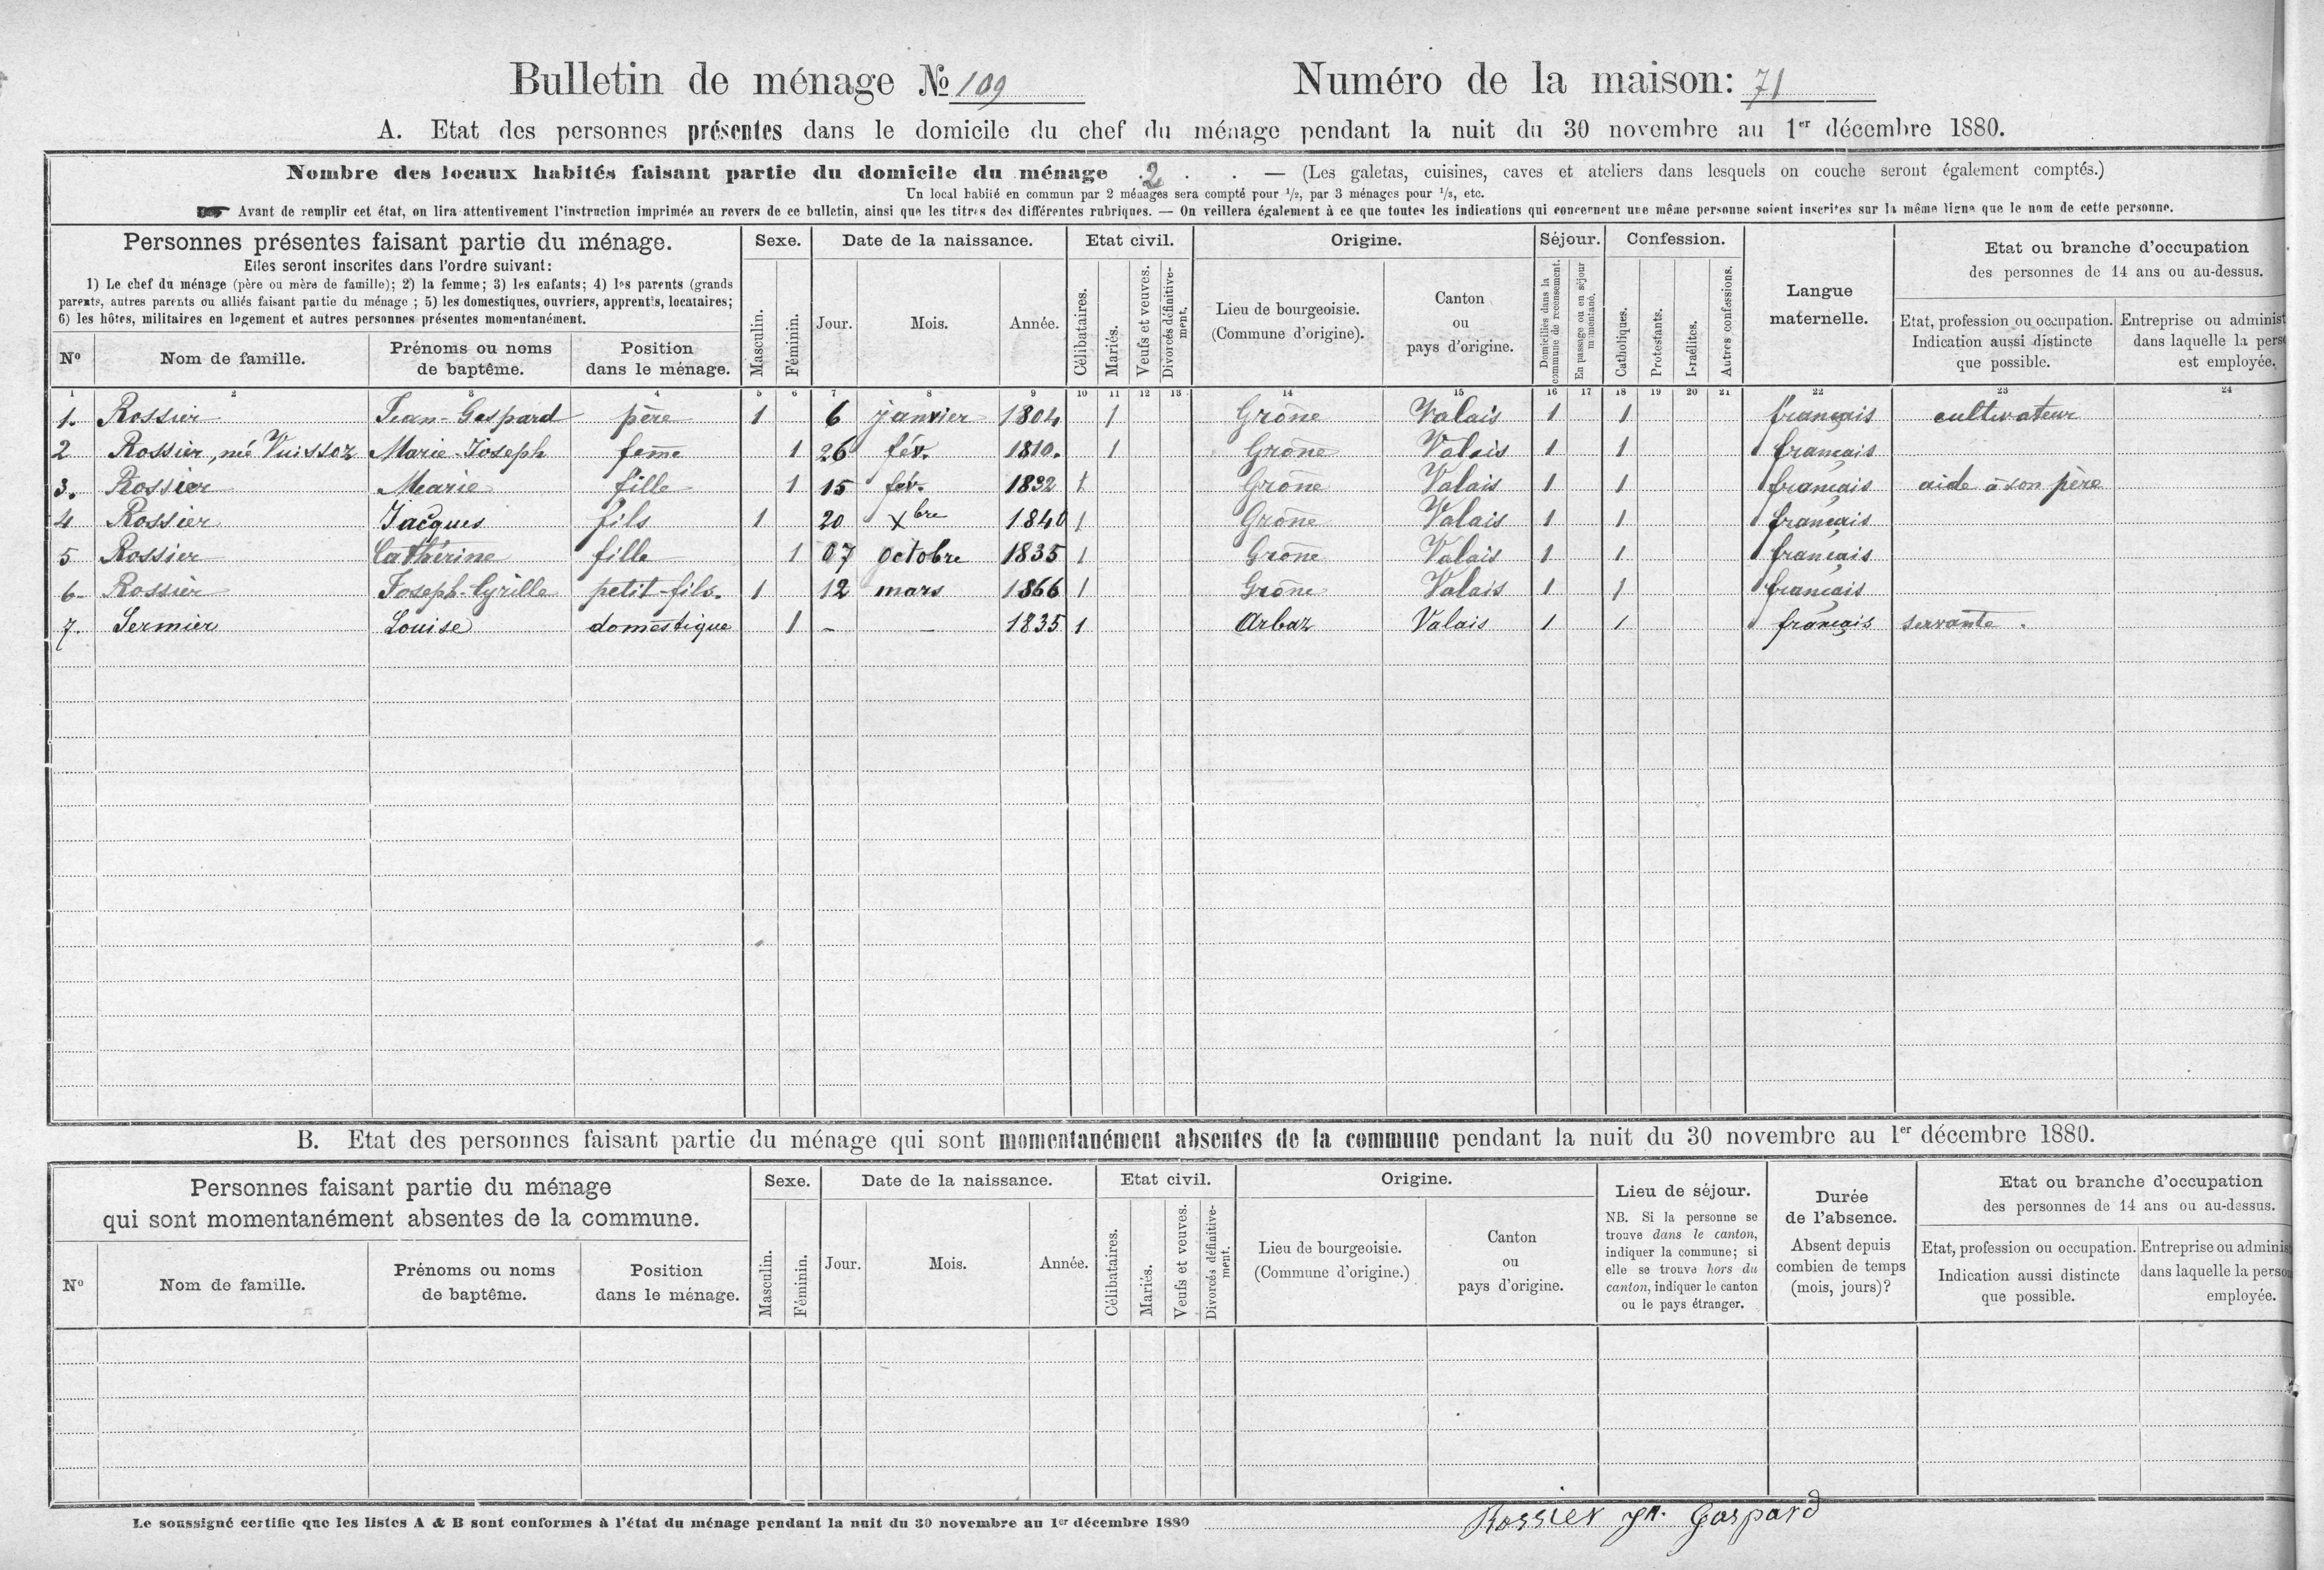 Bulletin de ménage № 109 Numéro de la maison: 71
A. Etat des personnes présentes dans le domicile du chef du ménage pendant la nuit du 30 novembre au 1er décembre 1880.
Nombre des locaux habités faisant partie du domicile du ménage . 2 . . — (Les galetas, cuisines, caves et ateliers dans lesquels on couche seront également comptés.)
Un local habité en commun par 2 ménages sera compté pour 1/2, par 3 ménages pour 1/3, etc.
Avant de remplir cet état, on lira attentivement l'instruction imprimée au revers de ce bulletin, ainsi que les titres des différentes rubriques. — On veillera également à ce que toutes les indications qui concernent une même personne soient inscrites sur la même ligne que le nom de cette personne.
Personnes présentes faisant partie du ménage.
Elles seront inscrites dans l'ordre suivant:
1) Le chef du ménage (père ou mère de famille); 2) la femme; 3) les enfants; 4) les parents (grands
parents, autres parents ou alliés faisant partie du ménage ; 5) les domestiques, ouvriers, apprentis, locataires;
6) les hôtes, militaires en logement et autres personnes présentes momentanément.
Nº Nom de famille. Prénoms ou noms de baptême. Position dans le ménage.
Sexe. Masculin. Féminin.
Date de la naissance. Jour. Mois. Année.
Etat civil. Célibataires. Mariés. Veufs et veuves. Divorcés définitivement.
Origine. Lieu de bourgeoisie. (Commune d'origine). Canton ou pays d'origine.
Séjour. Domiciliés dans la commune de recensement. En passage ou en séjour momentané.
Confession. Catholiques. Protestants. Israélites. Autres confessions.
Langue maternelle.
Etat ou branche d'occupation
des personnes de 14 ans ou au-dessus.
Etat, profession ou occupation. Indication aussi distincte que possible.
Entreprise ou administ
dans laquelle la pers
est employée.
1 2 3 4 5 6 7 8 9 10 11 12 13 14 15 16 17 18 19 20 21 22 23 24
1. Rossier Jean-Gaspard père 1 6 janvier 1804 1 Grône Valais 1 1 français cultivateur
2 Rossier, né Vuissoz Marie-Joseph feme 1 26 fév. 1810. 1 Grône Valais 1 1 français
3. Rossier Marie fille 1 15 fév. 1832 1 Grône Valais 1 1 français aide à son père
4 Rossier Jacques fils 1 20 Xbre 1840 1 Grône Valais 1 1 français
5 Rossier Cathérine fille 1 07 octobre 1835 1 Grône Valais 1 1 français
6- Rossier Joseph-Cyrille petit-fils. 1 12 mars 1866 1 Grône Valais 1 1 français
7. Sermier Louise domestique 1 - - 1835 1 Arbaz Valais 1 1 français servante.
B. Etat des personnes faisant partie du ménage qui sont momentanément absentes de la commune pendant la nuit du 30 novembre au 1er décembre 1880.
Personnes faisant partie du ménage
qui sont momentanément absentes de la commune.
Nº Nom de famille. Prénoms ou noms de baptême. Position dans le ménage.
Sexe. Masculin. Féminin.
Date de la naissance. Jour. Mois. Année.
Etat civil. Célibataires. Mariés. Veufs et veuves. Divorcés définitivement.
Origine. Lieu de bourgeoisie. (Commune d'origine.) Canton ou pays d'origine.
Lieu de séjour.
NB. Si la personne se
trouve dans le canton,
indiquer la commune; si
elle se trouve hors du
canton, indiquer le canton
ou le pays étranger.
Durée
de l'absence.
Absent depuis
combien de temps
(mois, jours)?
Etat ou branche d'occupation
des personnes de 14 ans ou au-dessus.
Etat, profession ou occupation. Indication aussi distincte que possible.
Entreprise ou adminis
dans laquelle la perso
employée.
Le soussigné certifie que les listes A & B sont conformes à l'état du ménage pendant la nuit du 30 novembre au 1er décembre 1880 Rossier Jn. Gaspard